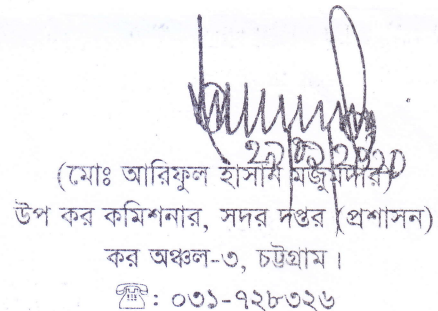 (মোঃ আরিফুল হাসান মজুমদার)
উপ কর কমিশনার, সদর দপ্তর (প্রশাসন)
কর অঞ্চল-৩, চট্টগ্রাম।
☎: ০৩১-৭২৮৩২৬